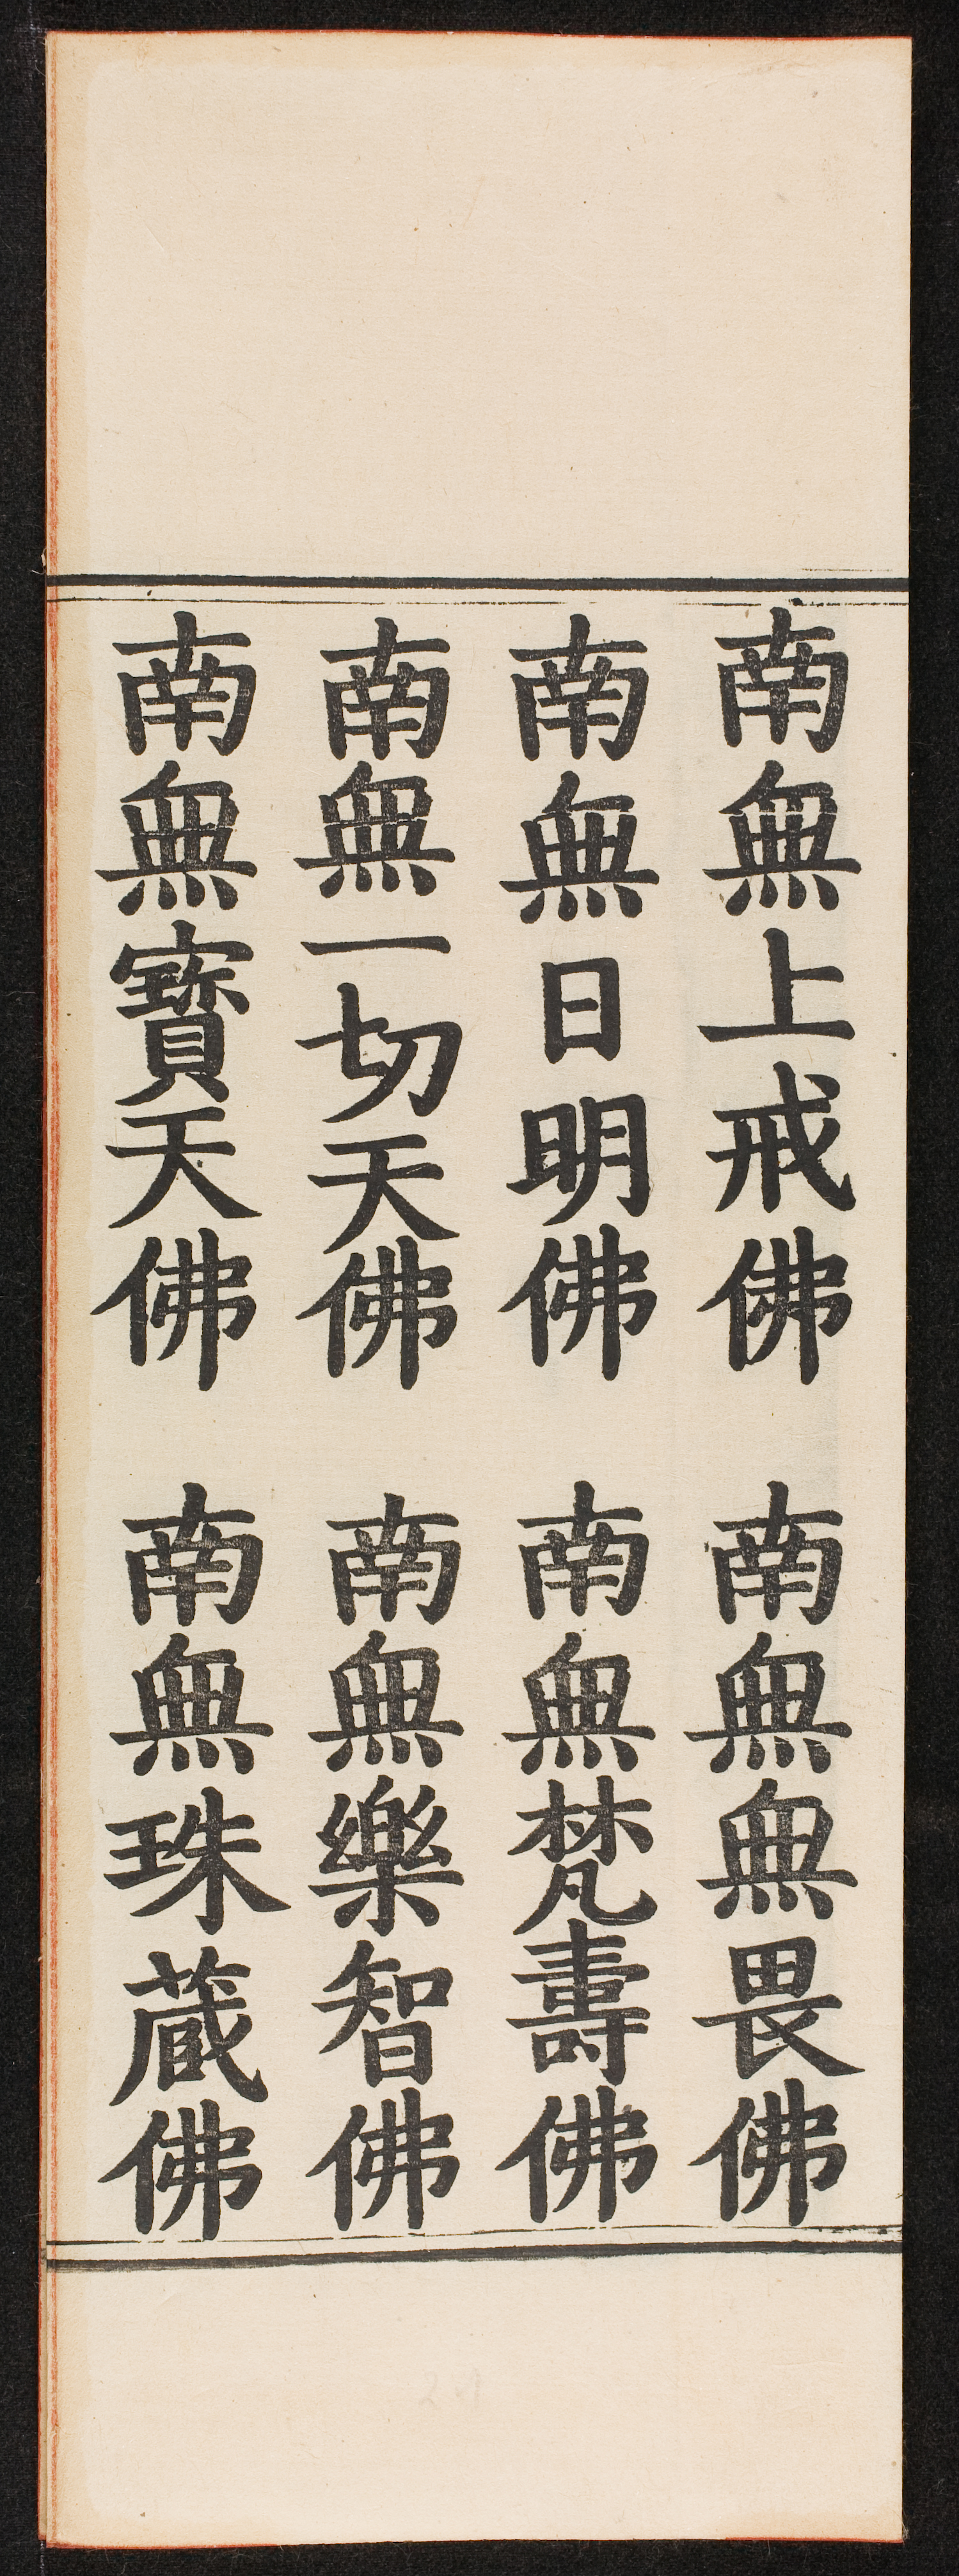 南無上戒佛　南無無畏佛
南無日明佛　南無梵壽佛
南無一切天佛　南無樂智佛
南無寶天佛　南無珠藏佛